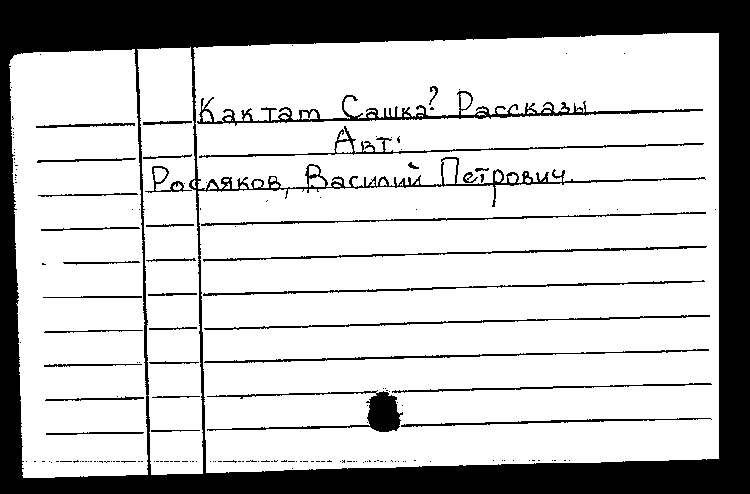 Как там Сашка? Рассказы
Авт:
Росляков, Василий Петрович.